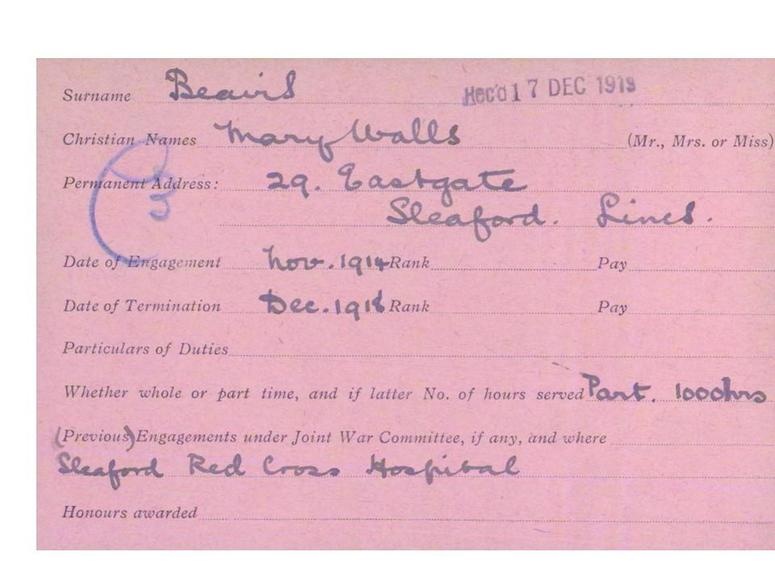 Surname Beavis Rec'd 17 DEC 1919
Christian Names Mary Walls (Mr., Mrs. or Miss)
Permanent Address: 29. Eastgate
3
Sleaford. Lincs.
Date of Engagement Nov. 1914 Rank Pay
Date of Termination Dec. 1918 Rank Pay
Particulars of Duties
Whether whole or part time, and if latter No. of hours served Part. 1000hrs
(Previous) Engagements under Joint War Committee, if any, and where
Sleaford Red Cross Hospital
Honours awarded